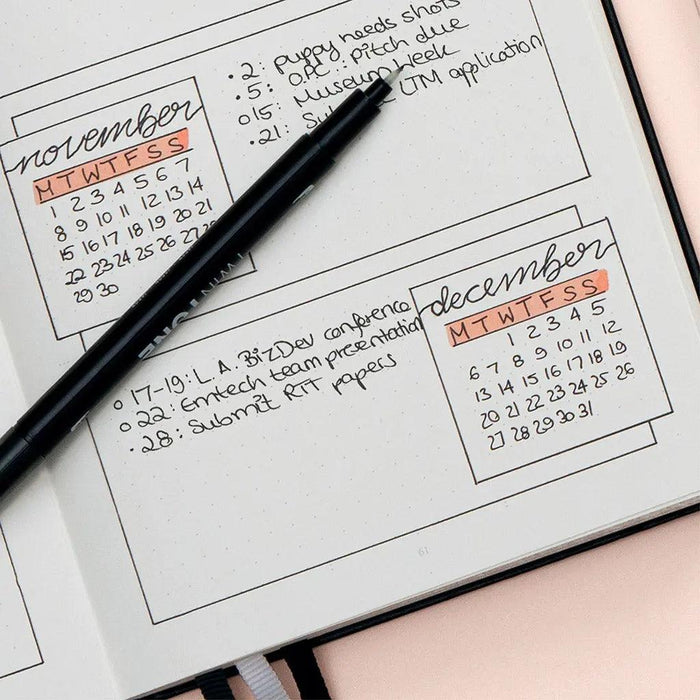 • 2: puppy needs shots
• 5: OPC: pitch due
o 15: Museum Week
• 21: LTM application
november
M T W T F S S
1 2 3 4 5 6 7
8 9 10 11 12 13 14
15 16 17 18 19 20 21
22 23 24 25 26 27 28
29 30
TWIN TONE
december
M T W T F S S
1 2 3 4 5
6 7 8 9 10 11 12
13 14 15 16 17 18 19
20 21 22 23 24 25 26
27 28 29 30 31
o 17-19: L.A. BizDev conference
o 22: Emtech team presentation
• 28: Submit RIT papers
61